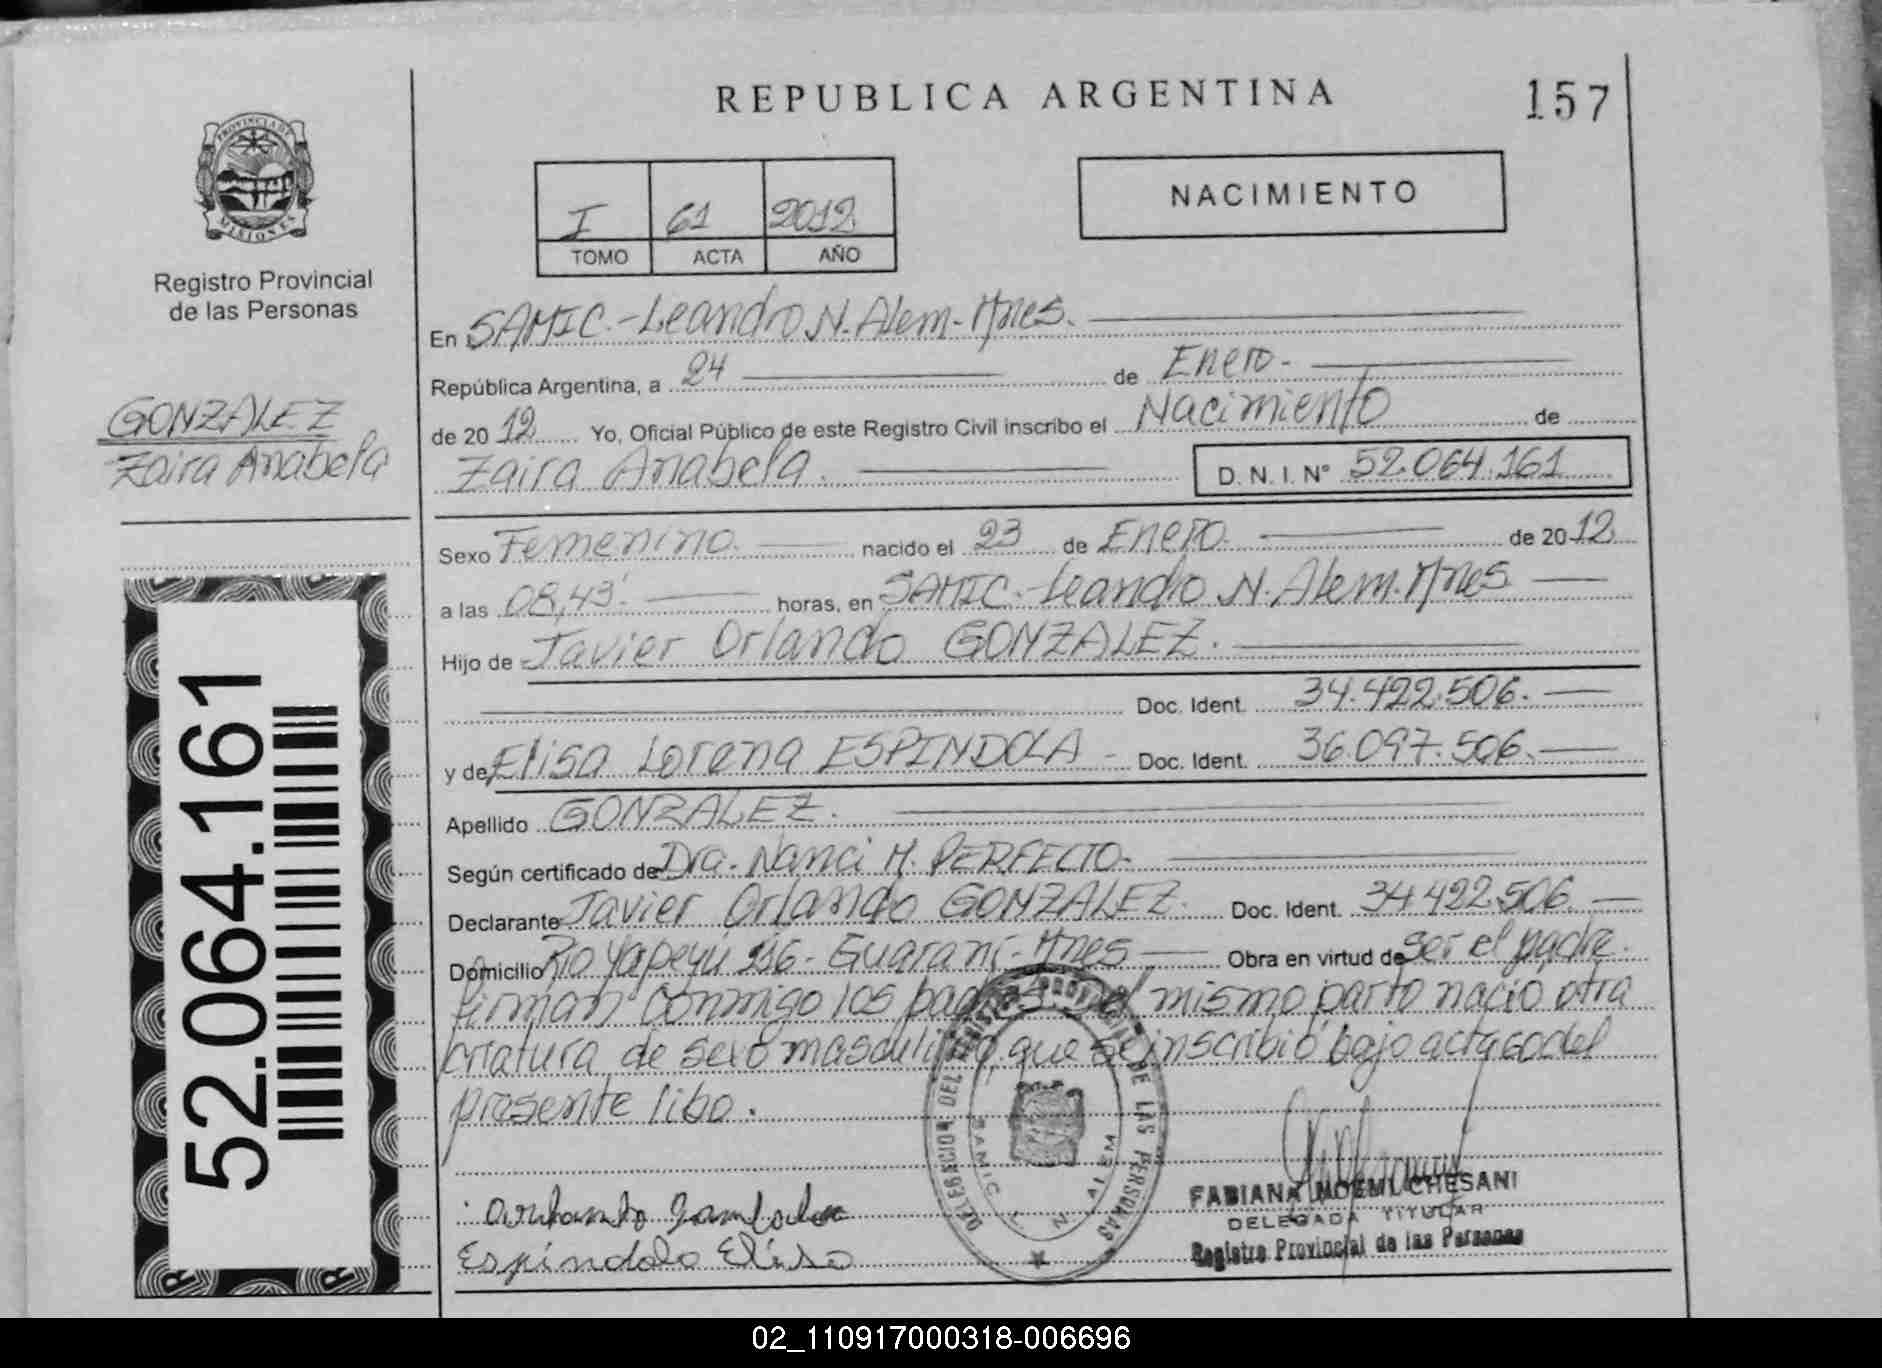 REPUBLICA ARGENTINA
157
PROVINCIA DE MISIONES
Registro Provincial
de las Personas
I 61 2012
TOMO ACTA AÑO
NACIMIENTO
GONZALEZ
Zaira Anabela
En SAMIC.-Leandro N. Alem-Mnes.
República Argentina, a 24 de Enero.
de 2012 Yo, Oficial Público de este Registro Civil inscribo el Nacimiento de
Zaira Anabela. D. N. I. N° 52.064.161
Sexo Femenino. nacido el 23 de Enero. de 2012
a las 08,43'. horas, en SAMIC.-Leandro N. Alem. Mnes
Hijo de Javier Orlando GONZALEZ.
Doc. Ident. 34.422.506.
y de Elisa Lorena ESPINDOLA - Doc. Ident. 36.097.506.
Apellido GONZALEZ.
Según certificado de Dra. Nanci M. PERFECTO.
Declarante Javier Orlando GONZALEZ. Doc. Ident. 34.422.506.
Domicilio Rio Yapeyú - Guaraní - Mnes Obra en virtud de ser el padre.
firman conmigo los padres. mismo parto nació otra
criatura de sexo masculino, que se inscribió bajo acta 60 del
presente libo.
52.064.161
DELEGACION DEL REGISTRO PROVINCIAL DE LAS PERSONAS
SAMIC L N ALEM
Espindola Elisa
FABIANA NOEMI CHESANI
DELEGADA TITULAR
Registro Provincial de las Personas
02_110917000318-006696